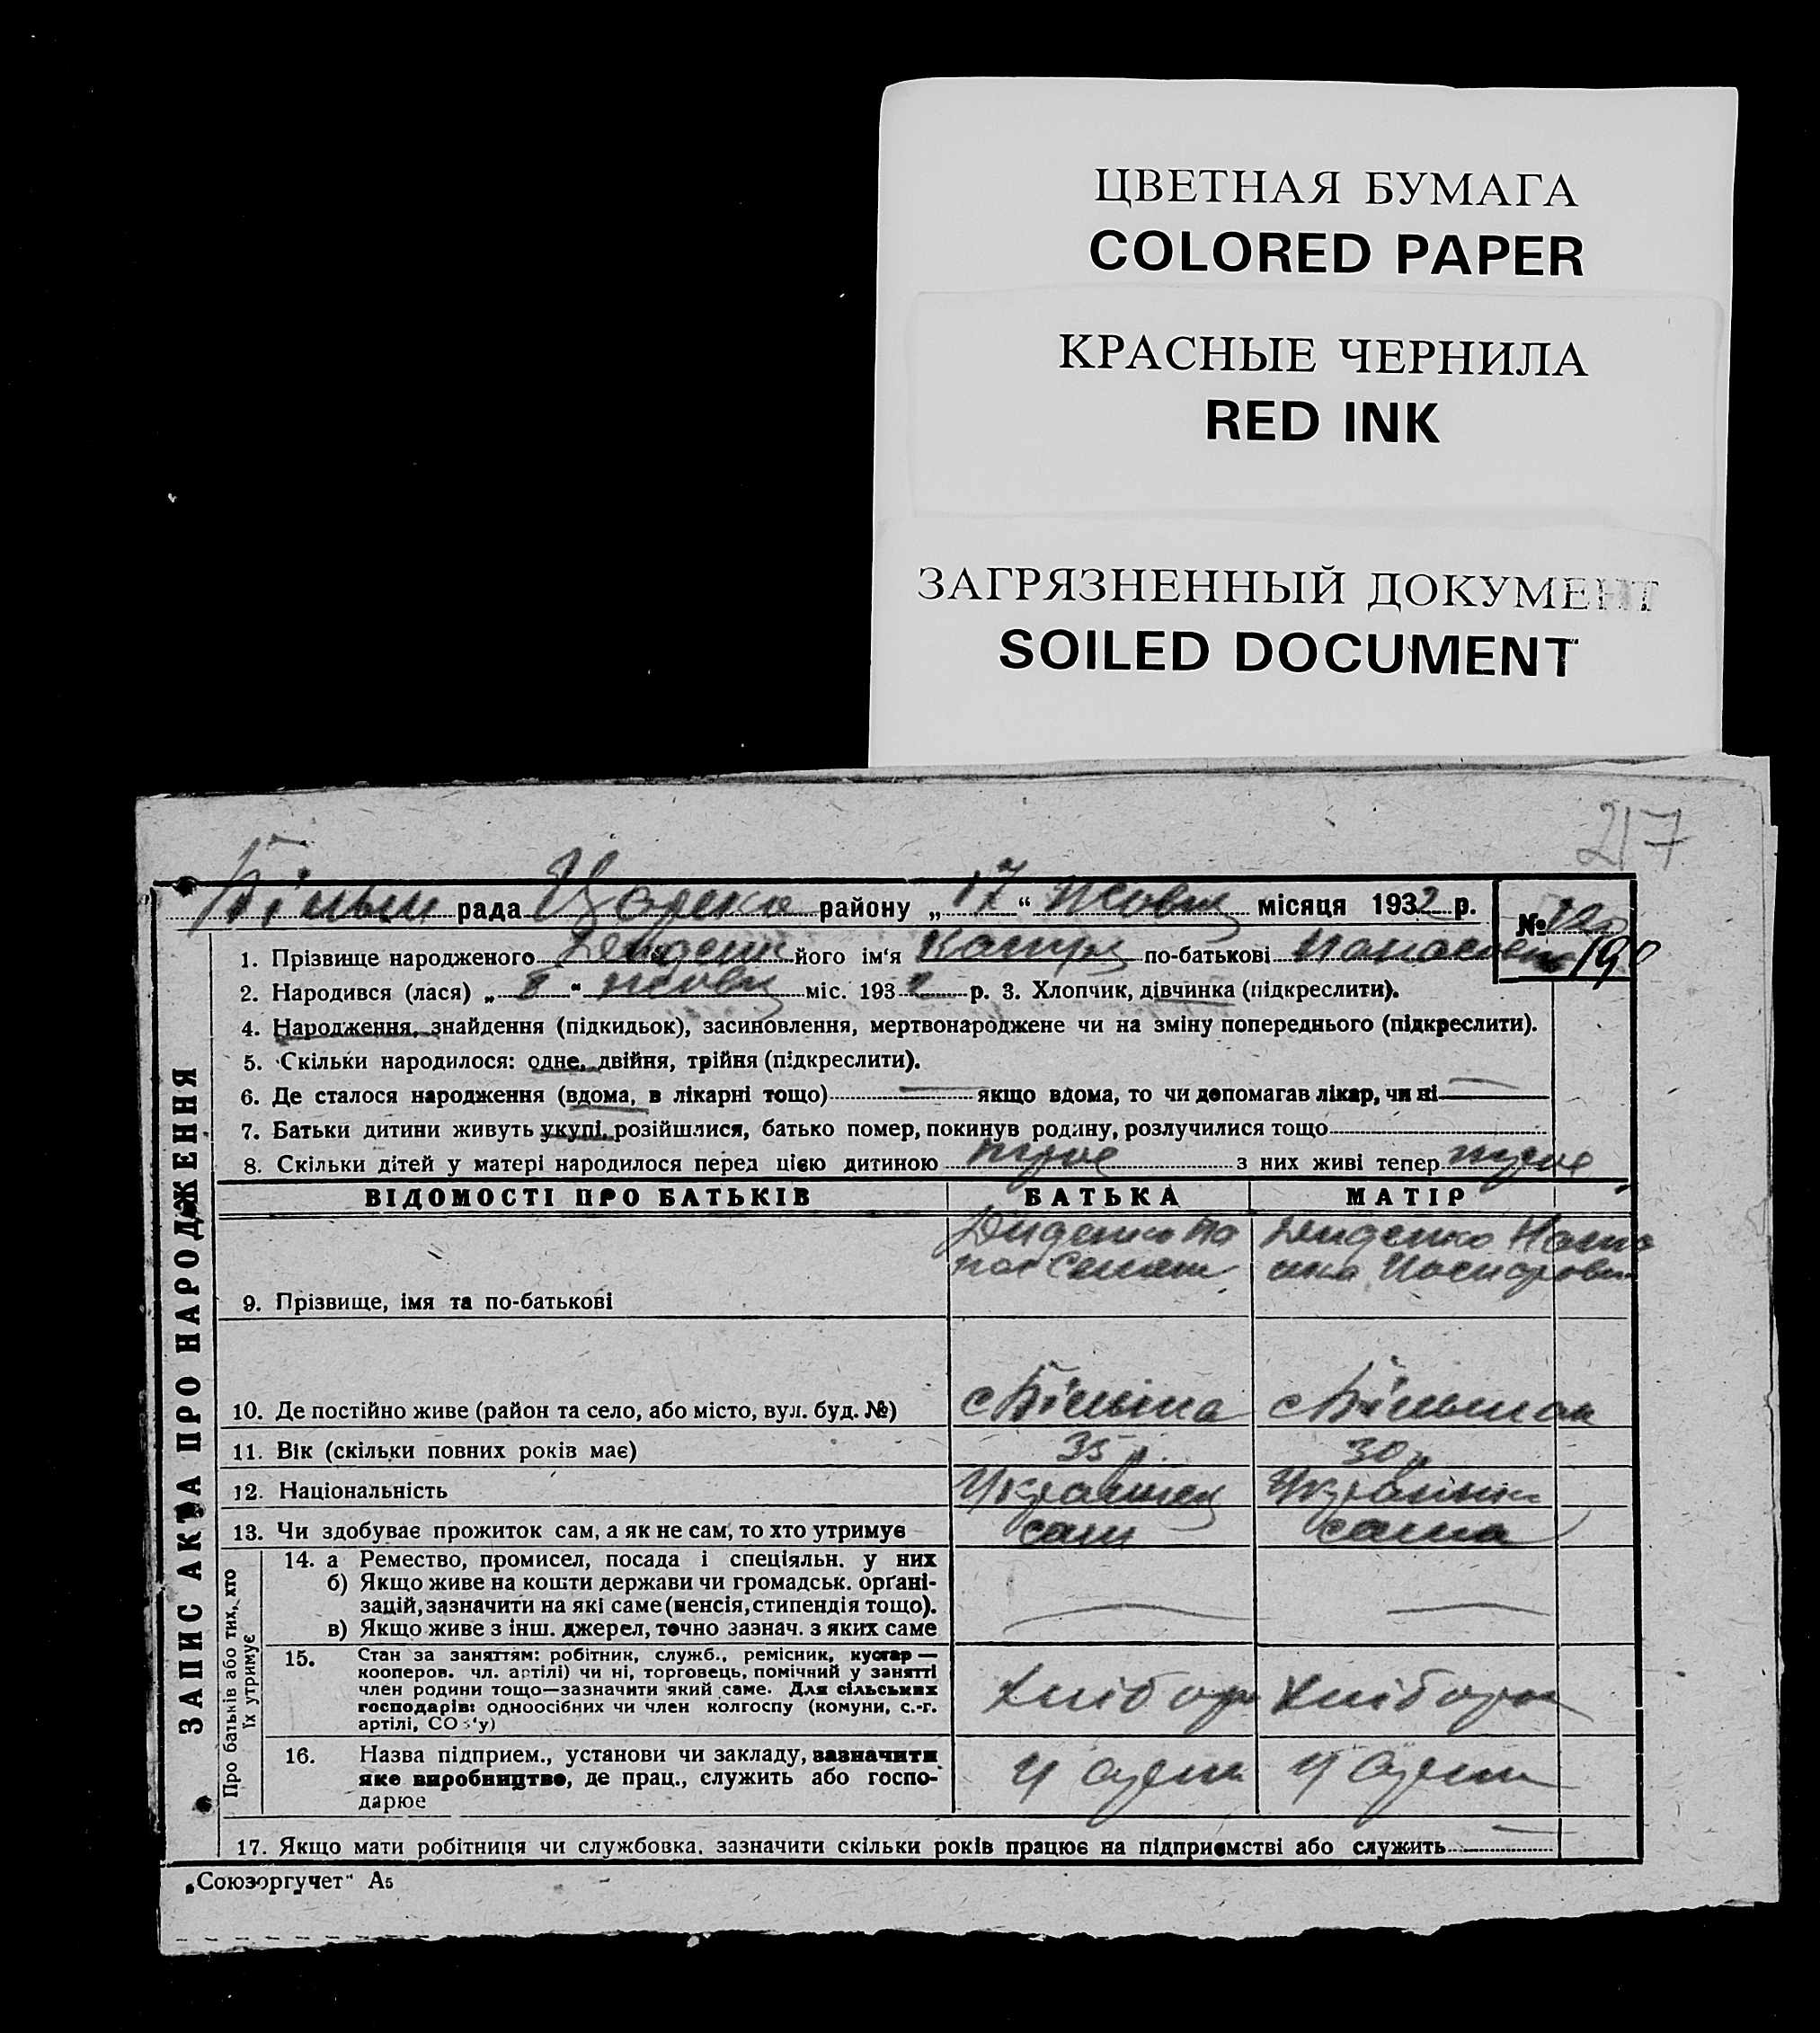 ЦВЕТНАЯ БУМАГА
COLORED PAPER
КРАСНЫЕ ЧЕРНИЛА
RED INK
ЗАГРЯЗНЕННЫЙ ДОКУМЕНТ
SOILED DOCUMENT
217
рада району „17“ місяця 1932 р. №
ЗАПИС АКТА ПРО НАРОДЖЕННЯ
1. Прізвище народженого його ім'я по-батькові
2. Народився (лася) „ “ міс. 193 р. 3. Хлопчик, дівчинка (підкреслити).
4. Народження, знайдення (підкидьок), засиновлення, мертвонароджене чи на зміну попереднього (підкреслити).
5. Скільки народилося: одне, двійня, трійня (підкреслити).
6. Де сталося народження (вдома, в лікарні тощо) якщо вдома, то чи допомагав лікар, чи ні
7. Батьки дитини живуть укупі, розійшлися, батько помер, покинув родину, розлучилися тощо
8. Скільки дітей у матері народилося перед цією дитиною троє з них живі тепер троє
ВІДОМОСТІ ПРО БАТЬКІВ БАТЬКА МАТІР
Диденко Па Диденко
нас
9. Прізвище, імя та по-батькові
10. Де постійно живе (район та село, або місто, вул. буд. №) с
11. Вік (скільки повних років має) 35 р. 30 р.
12. Національність Українец Українка
13. Чи здобуває прожиток сам, а як не сам, то хто утримує сам сама
Про батьків або тих, хто їх утримує
14. а Ремество, промисел, посада і спеціяльн. у них
б) Якщо живе на кошти держави чи громадськ. орґані-
зацій, зазначити на які саме (пенсія, стипендія тощо).
в) Якщо живе з інш. джерел, точно зазнач. з яких саме
15. Стан за заняттям: робітник, служб., ремісник, кустар —
кооперов. чл. артілі) чи ні, торговець, помічний у занятті
член родини тощо—зазначити який саме. Для сільських
господарів: одноосібних чи член колгоспу (комуни, с.-г.
артілі, СОЗ'у)
Хлібор Хлібороб
16. Назва підприєм., установи чи закладу, зазначити
яке виробництво, де прац., служить або госпо-
дарює
17. Якщо мати робітниця чи службовка, зазначити скільки років працює на підприємстві або служить
„Союзоргучет" А5